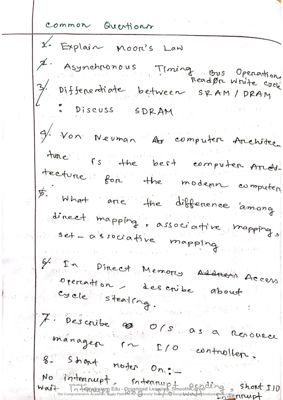 Common Questions
1. Explain Moor's Law
2. Asynchronous Timing Bus Operation
Read or Write Cycle
3. Differentiate between SRAM / DRAM
: Discuss SDRAM
4. Von Neuman computer Architec-
ture is the best computer Archi-
tecture for the modern computer
5. What are the difference among
direct mapping, associative mapping,
set-associative mapping
6. In Direct Memory Access
operation, describe about
cycle stealing.
7. Describe O/S as a resource
manager in I/O controller.
8. Short notes On:-
No interrupt, Interrupt Pending, Short I/O
wait